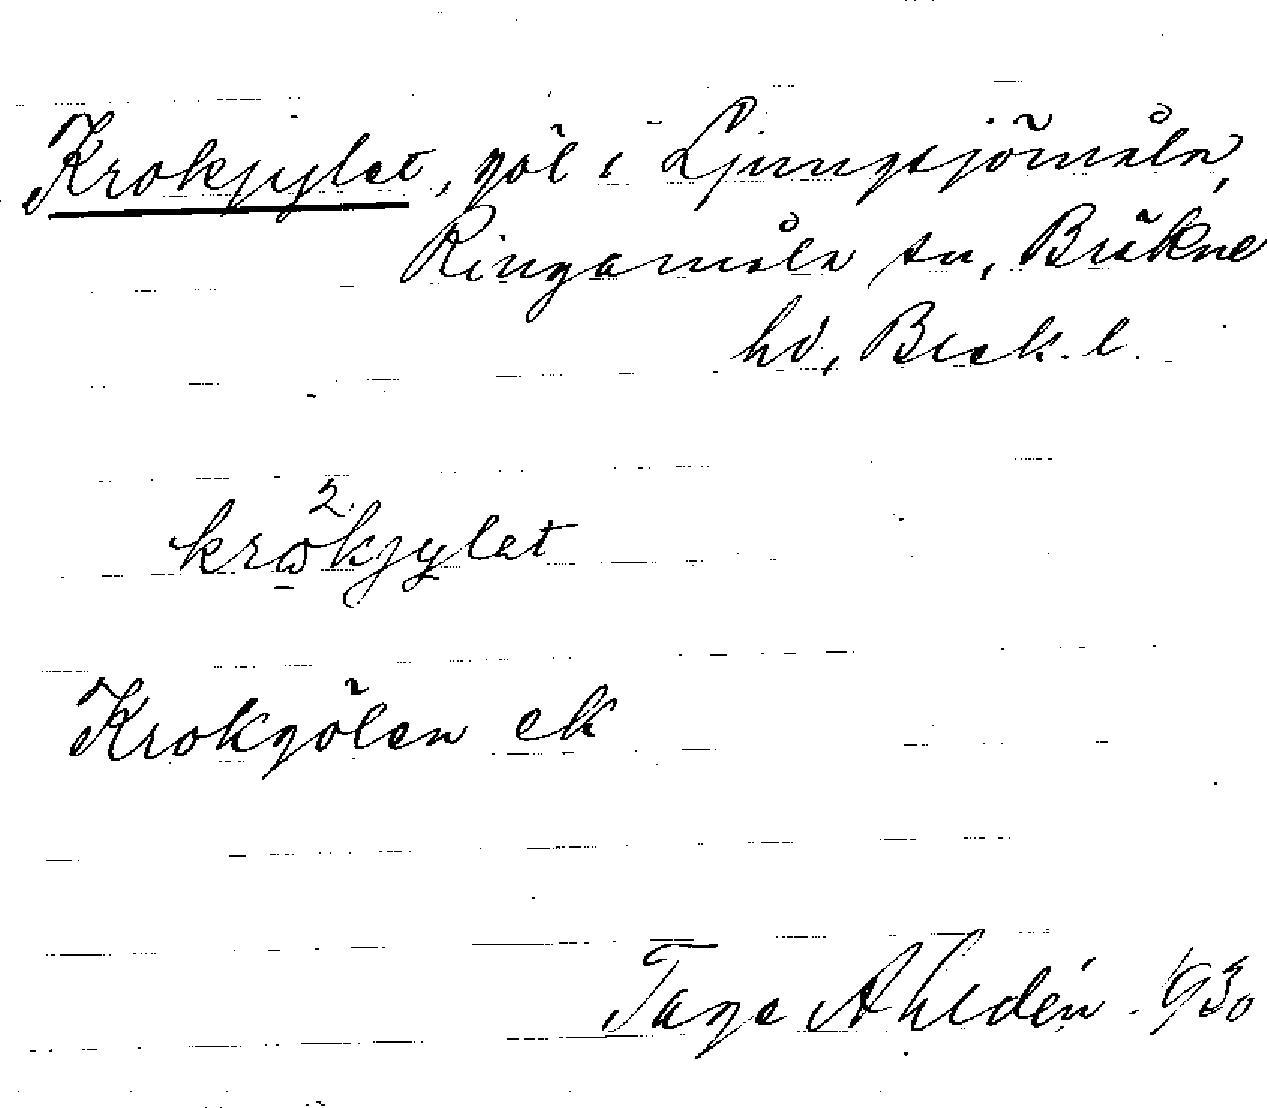 Krokjylet, göl i Ljungsjömåla,
Ringamåla sn, Bräkne
hd, Blek. l.
krω²kjylet
Krokgölen ek
Tage Ahldén. 1930